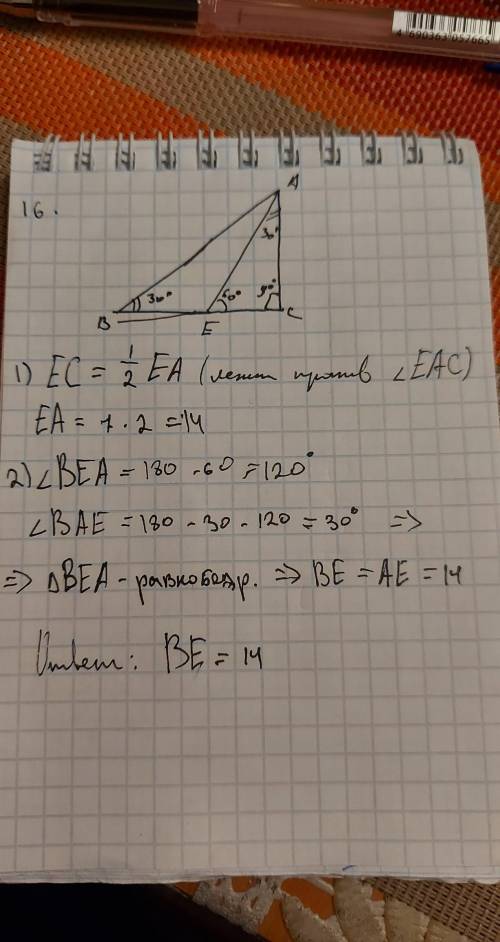 4 690363 037665
16.
A
30°
30° 60° 90°
B E C
1) EC = 1/2 EA (лежит против ∠EAC)
EA = 7 · 2 = 14
2) ∠BEA = 180 - 60 = 120°
∠BAE = 180 - 30 - 120 = 30° =>
=> △BEA - равнобедр. => BE = AE = 14
Ответ: BE = 14